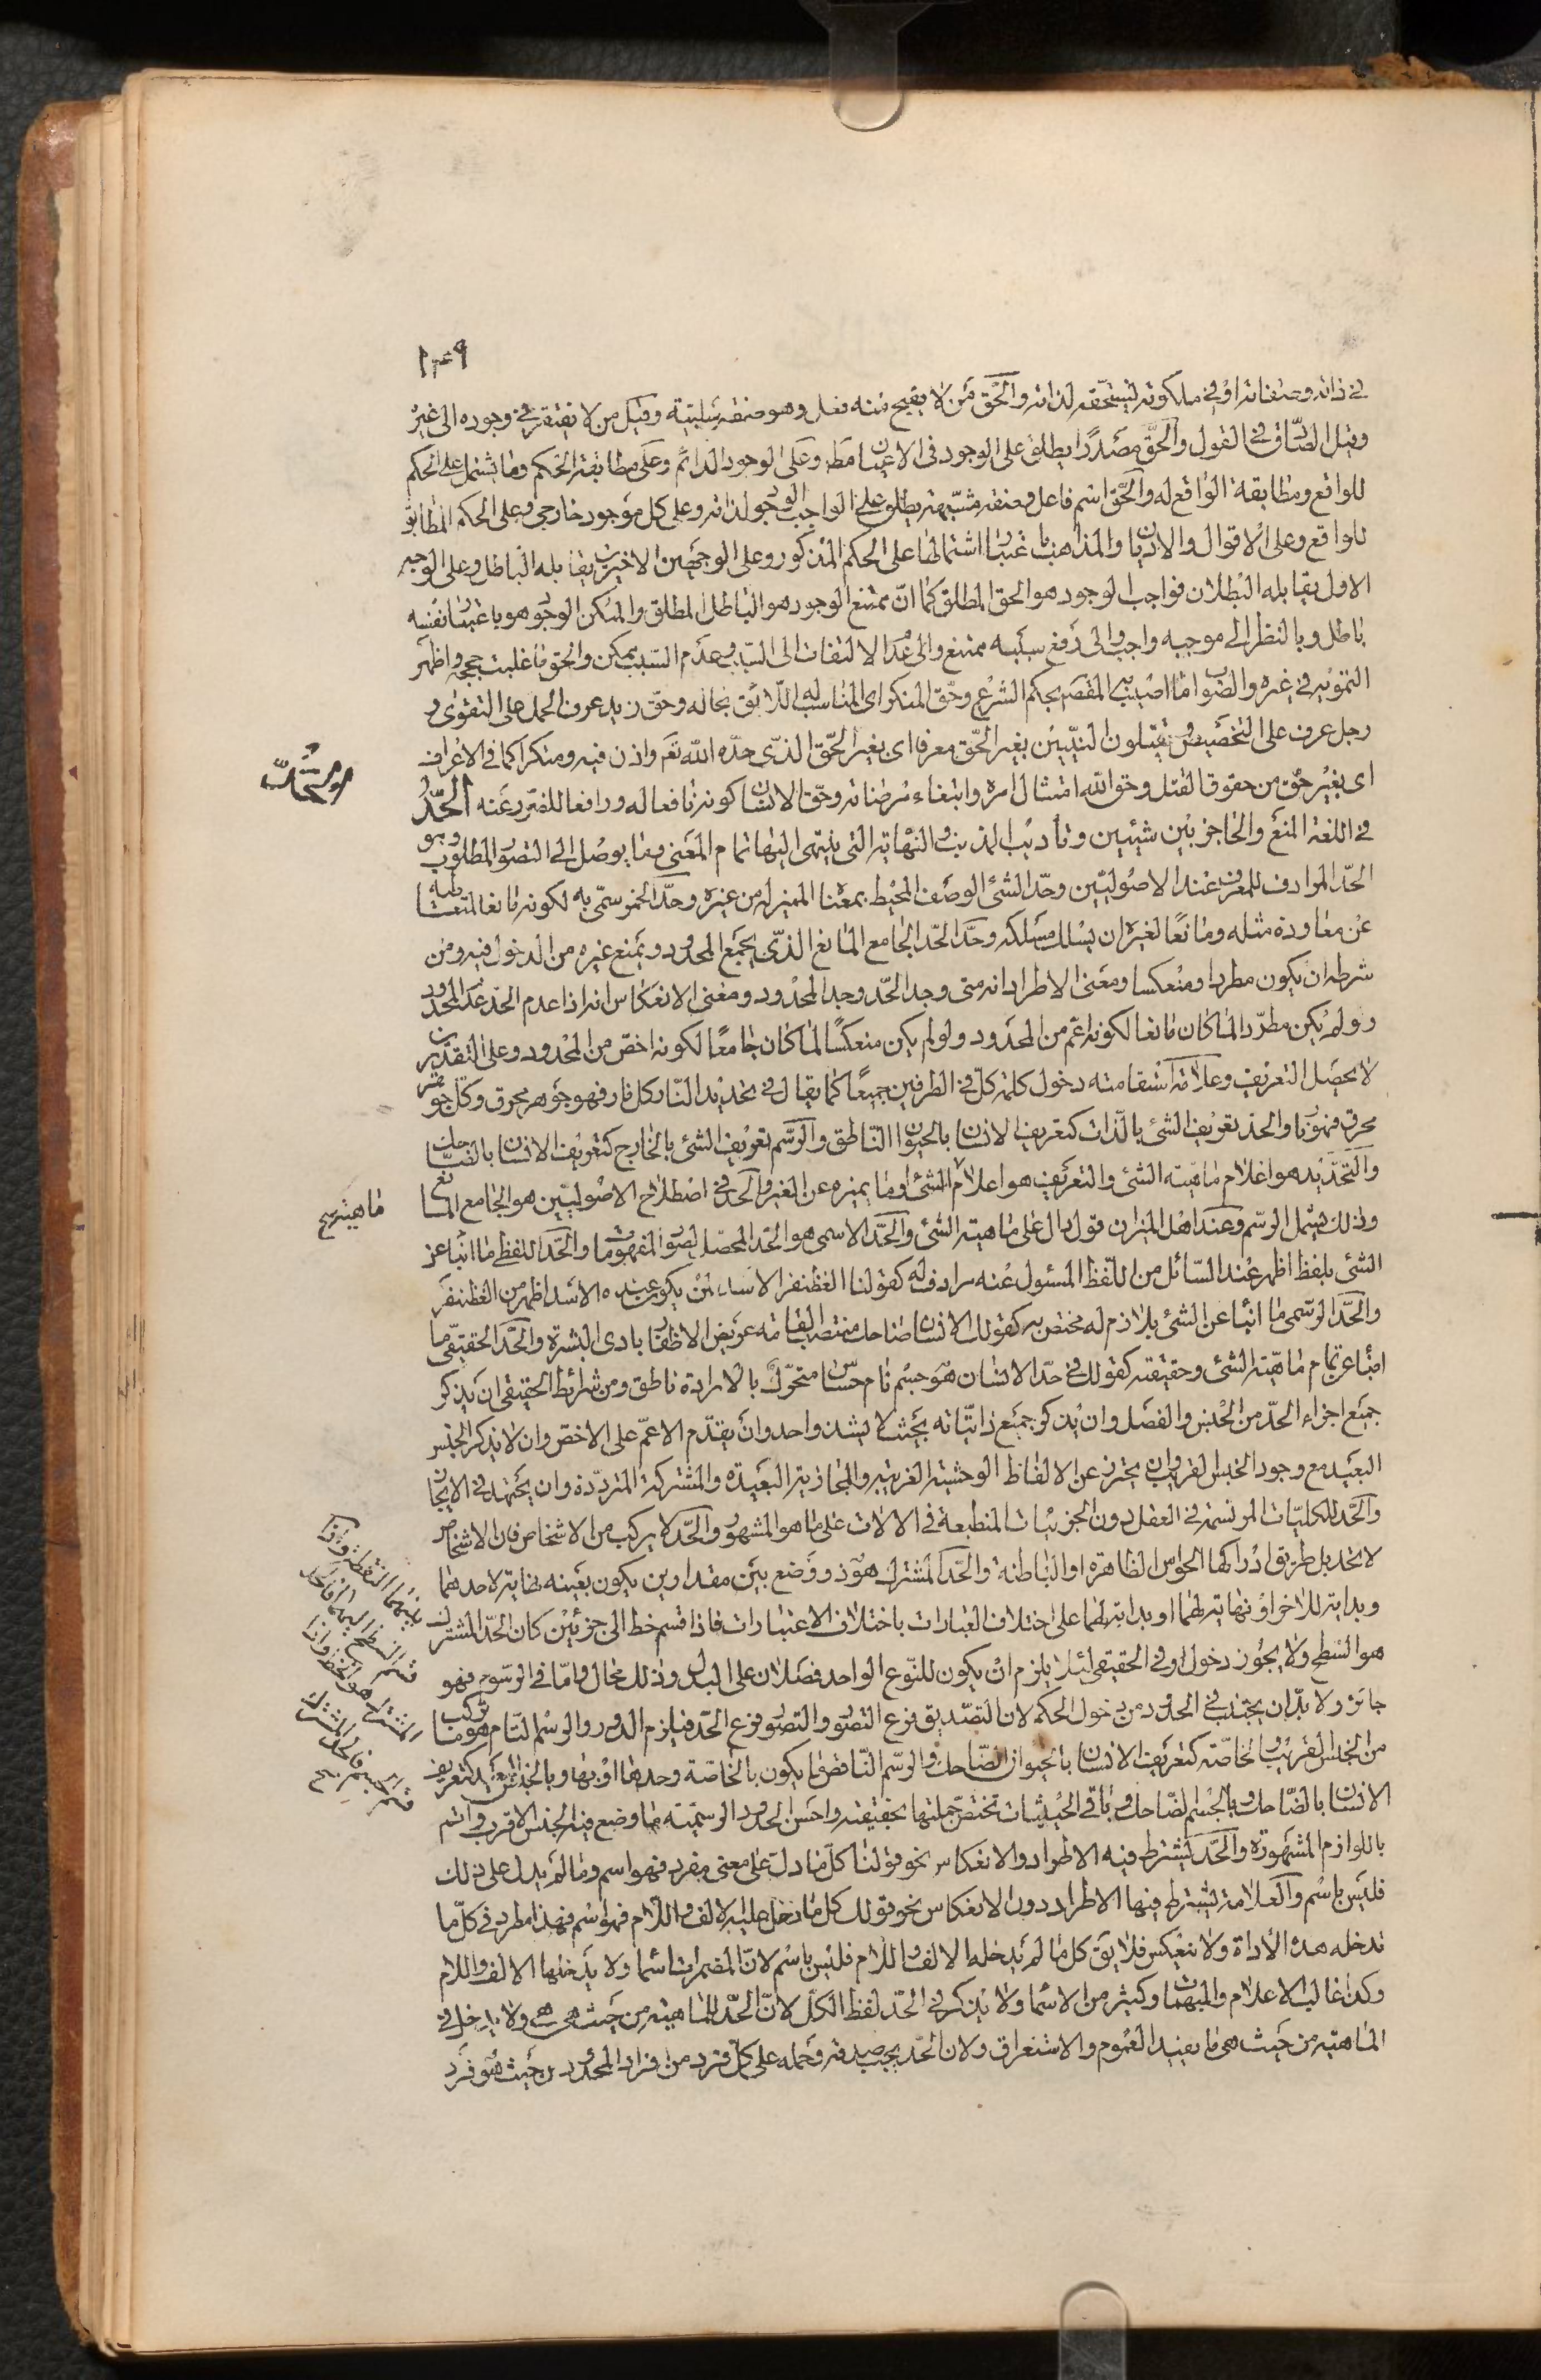 ١٣٩
في ذاته وصفاته او في ملكوته ليستحقه لذاته والحق من لا يقبح منه فعل وهو صفة سلبية وقيل من لا يفتقر في وجوده الى غيره
وقيل الصادق في القول والحق مصدرا يطلق على الوجود في الاعيان مط وعلى الوجود الدائم وعلى مطابقة الحكم وما يشتمل على الحكم
للواقع ومطابقة الواقع له والحق اسم فاعل وصفة مشبهة يطلق على الواجب الوجود لذاته وعلى كل موجود خارجي وعلى الحكم المطابق
للواقع وعلى الاقوال والاديان والمذاهب باعتبار اشتمالها على الحكم المذكور وعلى الوجهين الاخيرين يقابله الباطل وعلى الوجه
الاول يقابله البطلان فواجب الوجود هو الحق المطلق كما ان ممتنع الوجود هو الباطل المطلق والممكن الوجود هو باعتبار نفسه
باطل وبالنظر الى موجبه واجب والى رفع سببه ممتنع والى عدم الالتفات الى السبب وعدم السبب ممكن والحق ما غلبت حججه واظهر
التمويه في غيره والصواب ما اصيب به المقصد بحكم الشرع وحق المنكر اى المناسب له اللائق بحاله وحق زيد عرف الحمل على التقوى و
رجل عرف على التخصيص ويقتلون النبيين بغير الحق معرفا اى بغير الحق الذى حده الله تع واذن فيه ومنكرا كما في الاعراف
اى بغير حق من حقوق القتل وحق الله امتثال امره وابتغاء مرضاته وحق الانسان كونه نافعا له ورافعا للضرر عنه الحد
في اللغة المنع والحاجز بين شيئين وتأديب المذنب والنهاية التى ينتهى اليها تمام المعنى وما يوصل الى التصور المطلوب وهو
الحد المرادف للمعرف عند الاصوليين وحد الشئ الوصف المحيط بمعناه المميز له من غيره وحد الخمر سمى به لكونه مانعا لمتعاطيه
عن معاودة مثله ومانعا لغيره ان يسلك مسلكه وحد الحد الجامع المانع الذى يجمع المحدود ويمنع غيره من الدخول فيه ومن
شرطه ان يكون مطردا ومنعكسا ومعنى الاطراد انه متى وجد الحد وجد المحدود ومعنى الانعكاس انه اذا عدم الحد عدم المحدود
ولو لم يكن مطردا لما كان مانعا لكونه اعم من المحدود ولو لم يكن منعكسا لما كان جامعا لكونه اخص من المحدود وعلى التقديرين
لا يحصل التعريف وعلامة استقامته دخول كلمة كل في الطرفين جميعا كما يقال في تحديد النار كل نار فهو جوهر محرق وكل جوهر
محرق فهو نار والحد تعريف الشئ بالذات كتعريف الانسان بالحيوان الناطق والرسم تعريف الشئ بالخارج كتعريف الانسان بالضاحك
والتحديد هو اعلام ماهية الشئ والتعريف هو اعلام الشئ او ما يميزه عن الغير والحد في اصطلاح الاصوليين هو الجامع المانع
وذلك يشمل الرسم وعند اهل الميزان قول دال على ماهية الشئ والحد الاسمى هو الحد المحصل لصور المفهومات والحد اللفظى ما انبأ عن
الشئ بلفظ اظهر عند السائل من اللفظ المسئول عنه مرادف له كقولنا الغضنفر الاسد لمن يكون عنده الاسد اظهر من الغضنفر
والحد الرسمى ما انبأ عن الشئ بلازم له مختص به كقولك الانسان ضاحك منتصب القامة عريض الاظفار بادى البشرة والحد الحقيقى ما
انبأ عن تمام ماهية الشئ وحقيقته كقولك في حد الانسان هو جسم نام حساس متحرك بالارادة ناطق ومن شرائط الحقيقى ان يذكر
جميع اجزاء الحد من الجنس والفصل وان يذكر جميع ذاتياته بحيث لا يشذ واحد وان يقدم الاعم على الاخص وان لا يذكر الجنس
البعيد مع وجود الجنس القريب وان يحترز عن الالفاظ الوحشية الغريبة والمجازية البعيدة والمشتركة المترددة وان يجتهد في الايجاز
والحد للكليات المرتسمة في العقل دون الجزئيات المنطبعة في الالات على ما هو المشهور والحد لا يركب من الاشخاص فان الاشخاص
لا تحد بل طريق ادراكها الحواس الظاهرة او الباطنة والحد المشترك هو ذو وضع بين مقدارين يكون بعينه نهاية لاحدهما
وبداية للاخر او نهاية لهما او بداية لهما على اختلاف العبارات باختلاف الاعتبارات فاذا قسم خط الى جزئين كان الحد المشترك
هو السطح ولا يجوز دخول او في الحقيقى لئلا يلزم ان يكون للنوع الواحد فصلان على البدل وذلك محال واما في الرسوم فهو
جائز ولا بد ان يجتنب في الحدود من دخول الحكم لان التصديق فرع التصور والتصور فرع الحد فيلزم الدور والرسم التام هو ما تركب
من الجنس القريب والخاصة كتعريف الانسان بالحيوان الضاحك والرسم الناقص ما يكون بالخاصة وحدها او بها وبالجنس البعيد كتعريف
الانسان بالضاحك وبالجسم الضاحك وباقى الحيثيات تختص جملتها بحقيقته واحسن الحدود الرسمية ما وضع فيه الجنس الاقرب واتم
باللوازم المشهورة والحد يشترط فيه الاطراد والانعكاس نحو قولنا كل ما دل على معنى مفرد فهو اسم وما لم يدل على ذلك
فليس باسم والعلامة يشترط فيها الاطراد دون الانعكاس نحو قولك كل ما دخل عليه الالف واللام فهو اسم فهذا مطرد في كل ما
تدخله هذه الاداة ولا ينعكس فلا يق كل ما لم يدخله الالف واللام فليس باسم لان المضمرات اسما ولا يدخلها الالف واللام
وكذا غالب الاعلام والمبهمات وكثير من الاسما ولا يذكر في الحد لفظ الكل لان الحد للماهية من حيث هى هى ولا يدخل في
الماهية من حيث هى ما يفيد العموم والاستغراق ولان الحد يجب صدقه وحمله على كل فرد من افراد المحدود من حيث هو فرد
ماهيته صح
بينهما النقطة واذا
قسم السطح اليهما فالحد
المشترك هو الخط واذا
قسم الجسم فالحد المشترك
صح